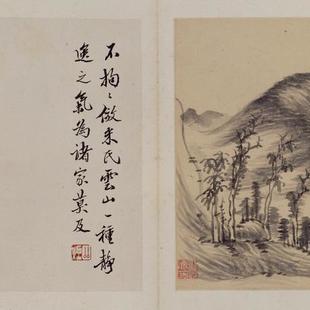 不拘拘倣米氏雲山一種靜
逸之氣為諸家莫及